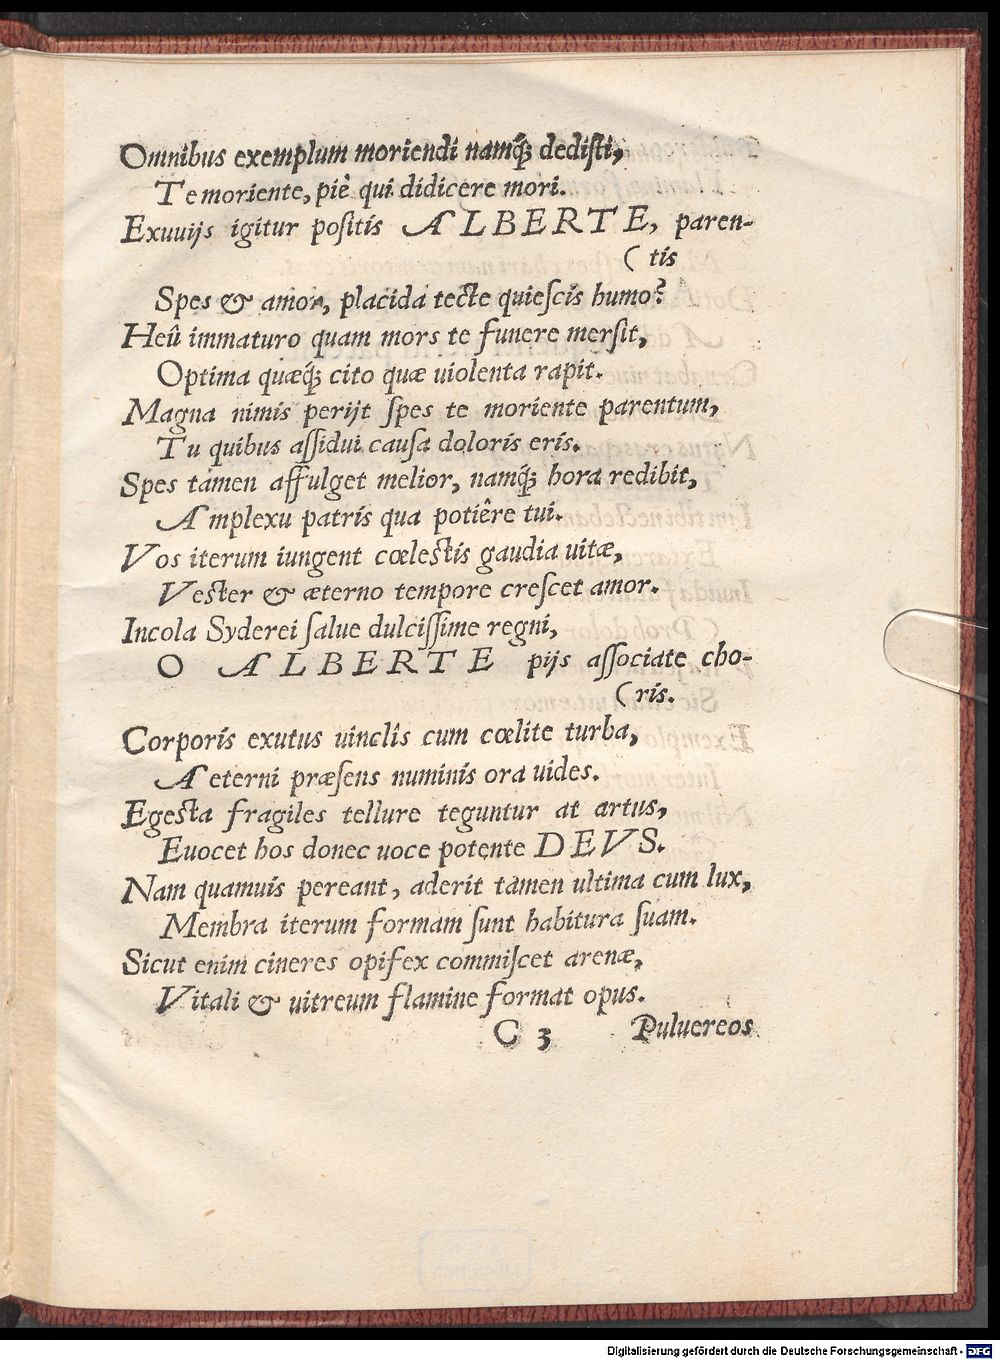 Omnibus exemplum moriendi namq́; dedisti,
Te moriente, piè qui didicere mori.
Exuuijs igitur positis ALBERTE, paren-
(tis
Spes & amor, placida tecte quiescis humo?
Heû immaturo quam mors te funere mersit,
Optima quæq́; cito quæ uiolenta rapit.
Magna nimis perijt spes te moriente parentum,
Tu quibus assidui causa doloris eris.
Spes tamen affulget melior, namq́; hora redibit,
Amplexu patris qua potiêre tui.
Vos iterum iungent cœlestis gaudia uitæ,
Vester & æterno tempore crescet amor.
Incola Syderei salue dulcissime regni,
O ALBERTE pijs associate cho-
(ris.
Corporis exutus uinclis cum cœlite turba,
Aeterni præsens numinis ora uides.
Egesta fragiles tellure teguntur at artus,
Euocet hos donec uoce potente DEVS.
Nam quamuis pereant, aderit tamen ultima cum lux,
Membra iterum formam sunt habitura suam.
Sicut enim cineres opifex commiscet arenæ,
Vitali & uitreum flamine format opus.
C 3 Puluereos
Digitalisierung gefördert durch die Deutsche Forschungsgemeinschaft - DFG